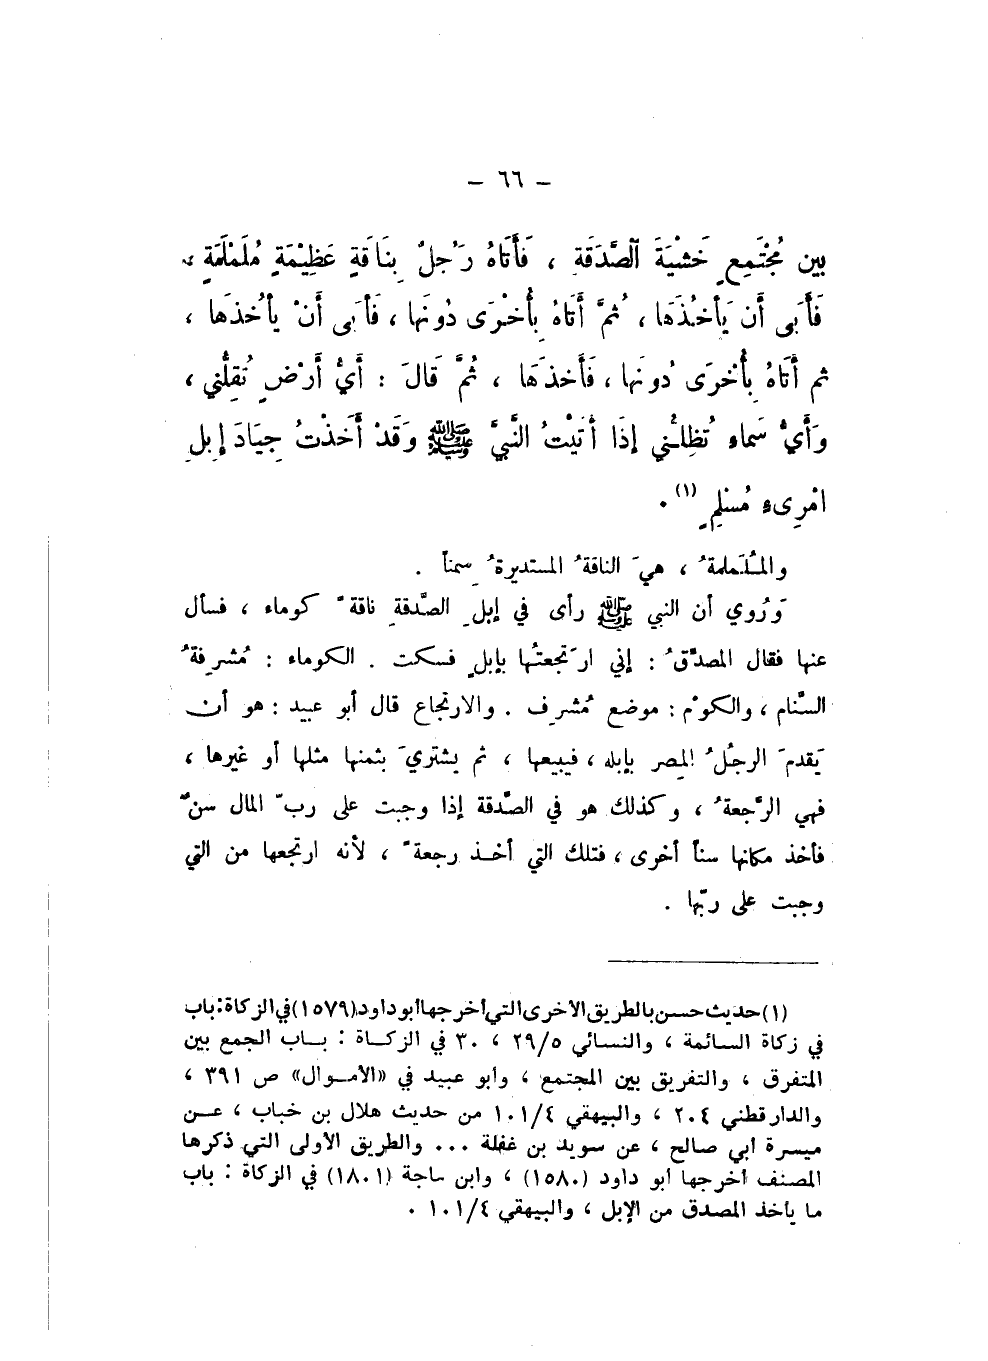 – ٦٦ –
بين مُجْتَمِعٍ خَشْيَةَ ٱلصَّدَقَةِ ، فَأَتَاهُ رَجُلٌ بِنَاقَةٍ عَظِيْمَةٍ مُلَمْلَمَةٍ ،
فَأَبَى أَن يَأخُذَهَا ، ثُمَّ أَتَاهُ بِأُخْرَى دُونَها ، فَأبَى أَنْ يأخُذَها ،
ثم أَتَاهُ بِأُخْرَى دُونَها ، فَأَخذَهَا ، ثُمَّ قَالَ : أَيُّ أَرْضٍ تُقِلُّني ،
وَأَيُّ سَماءِ تُظِلُّني إذَا أتَيْتُ النَّبِيَّ ﷺ وَقَدْ أَخَذْتُ جِيَادَ إبِلِ
امْرِىءٍ مُسْلِمٍ (١) .
والمُلَملمةُ ، هيَ الناقةُ المستديرةُ سِمناً .
وَرُوي أن النبي ﷺ رأى في إبلِ الصَّدقةِ ناقةً كوماء ، فسأل
عنها فقال المصدِّقُ : إني ارتَجعتُها بإبلٍ فسكت . الكوماء : مُشرِفةُ
السَّنام ، والكوْم : موضع مُشرِف . والارتجاع قال أبو عبيد : هو أن
يَقدمَ الرجلُ المِصر بإبله ، فيبيعها ، ثم يشتريَ بثمنها مثلها أو غيرها ،
فهي الرَّجعةُ ، وكذلك هو في الصَّدقة إذا وجبت على ربّ المال سنٌّ
فأخذ مكانها سناً أخرى ، فتلك التي أخذ رجعةً ، لأنه ارتجعها من التي
وجبت على ربّها .
(١) حديث حسن بالطريق الأخرى التي أخرجها أبو داود (١٥٧٩) في الزكاة : باب
في زكاة السائمة ، والنسائي ٢٩/٥ ، ٣٠ في الزكاة : باب الجمع بين
المتفرق ، والتفريق بين المجتمع ، وأبو عبيد في «الأموال» ص ٣٩١ ،
والدارقطني ٢٠٤ ، والبيهقي ١٠١/٤ من حديث هلال بن خباب ، عن
ميسرة أبي صالح ، عن سويد بن غفلة ... والطريق الأولى التي ذكرها
المصنف أخرجها أبو داود (١٥٨٠) ، وابن ماجة (١٨٠١) في الزكاة : باب
ما يأخذ المصدق من الإبل ، والبيهقي ١٠١/٤ .